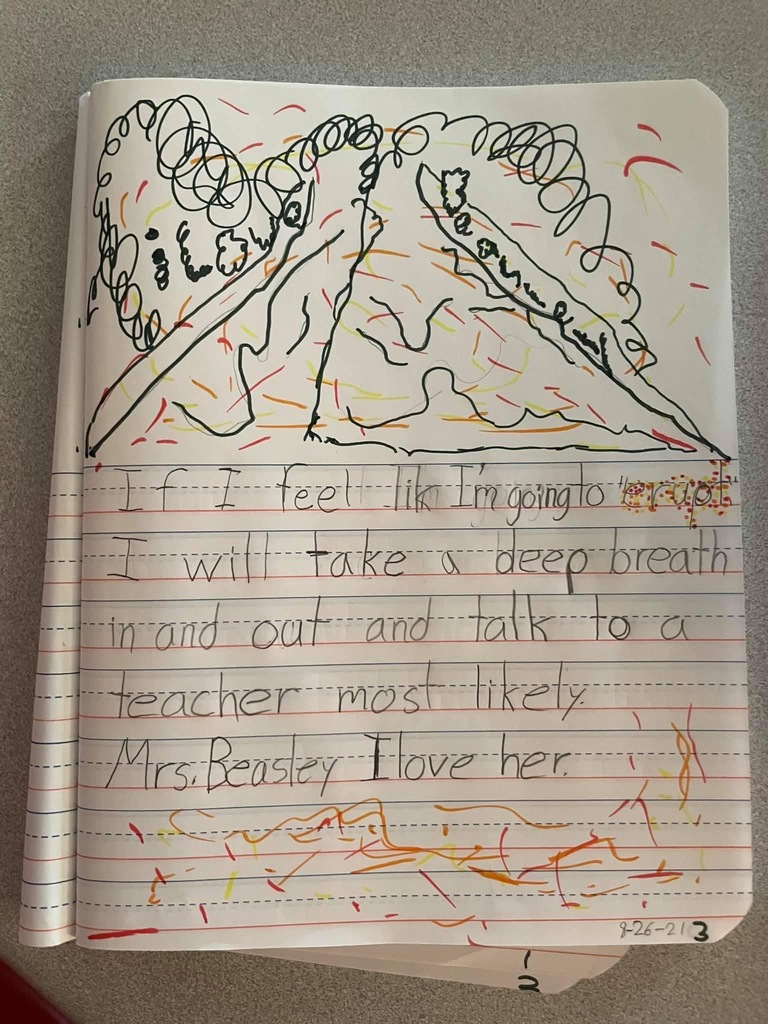 If I feel like I'm going to "erupt"
I will take a deep breath
in and out and talk to a
teacher most likely.
Mrs. Beasley I love her.
8-26-21 3
1
2